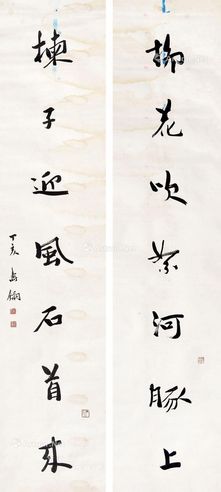 柳花吹絮河豚上
楝子迎風石首來
丁亥